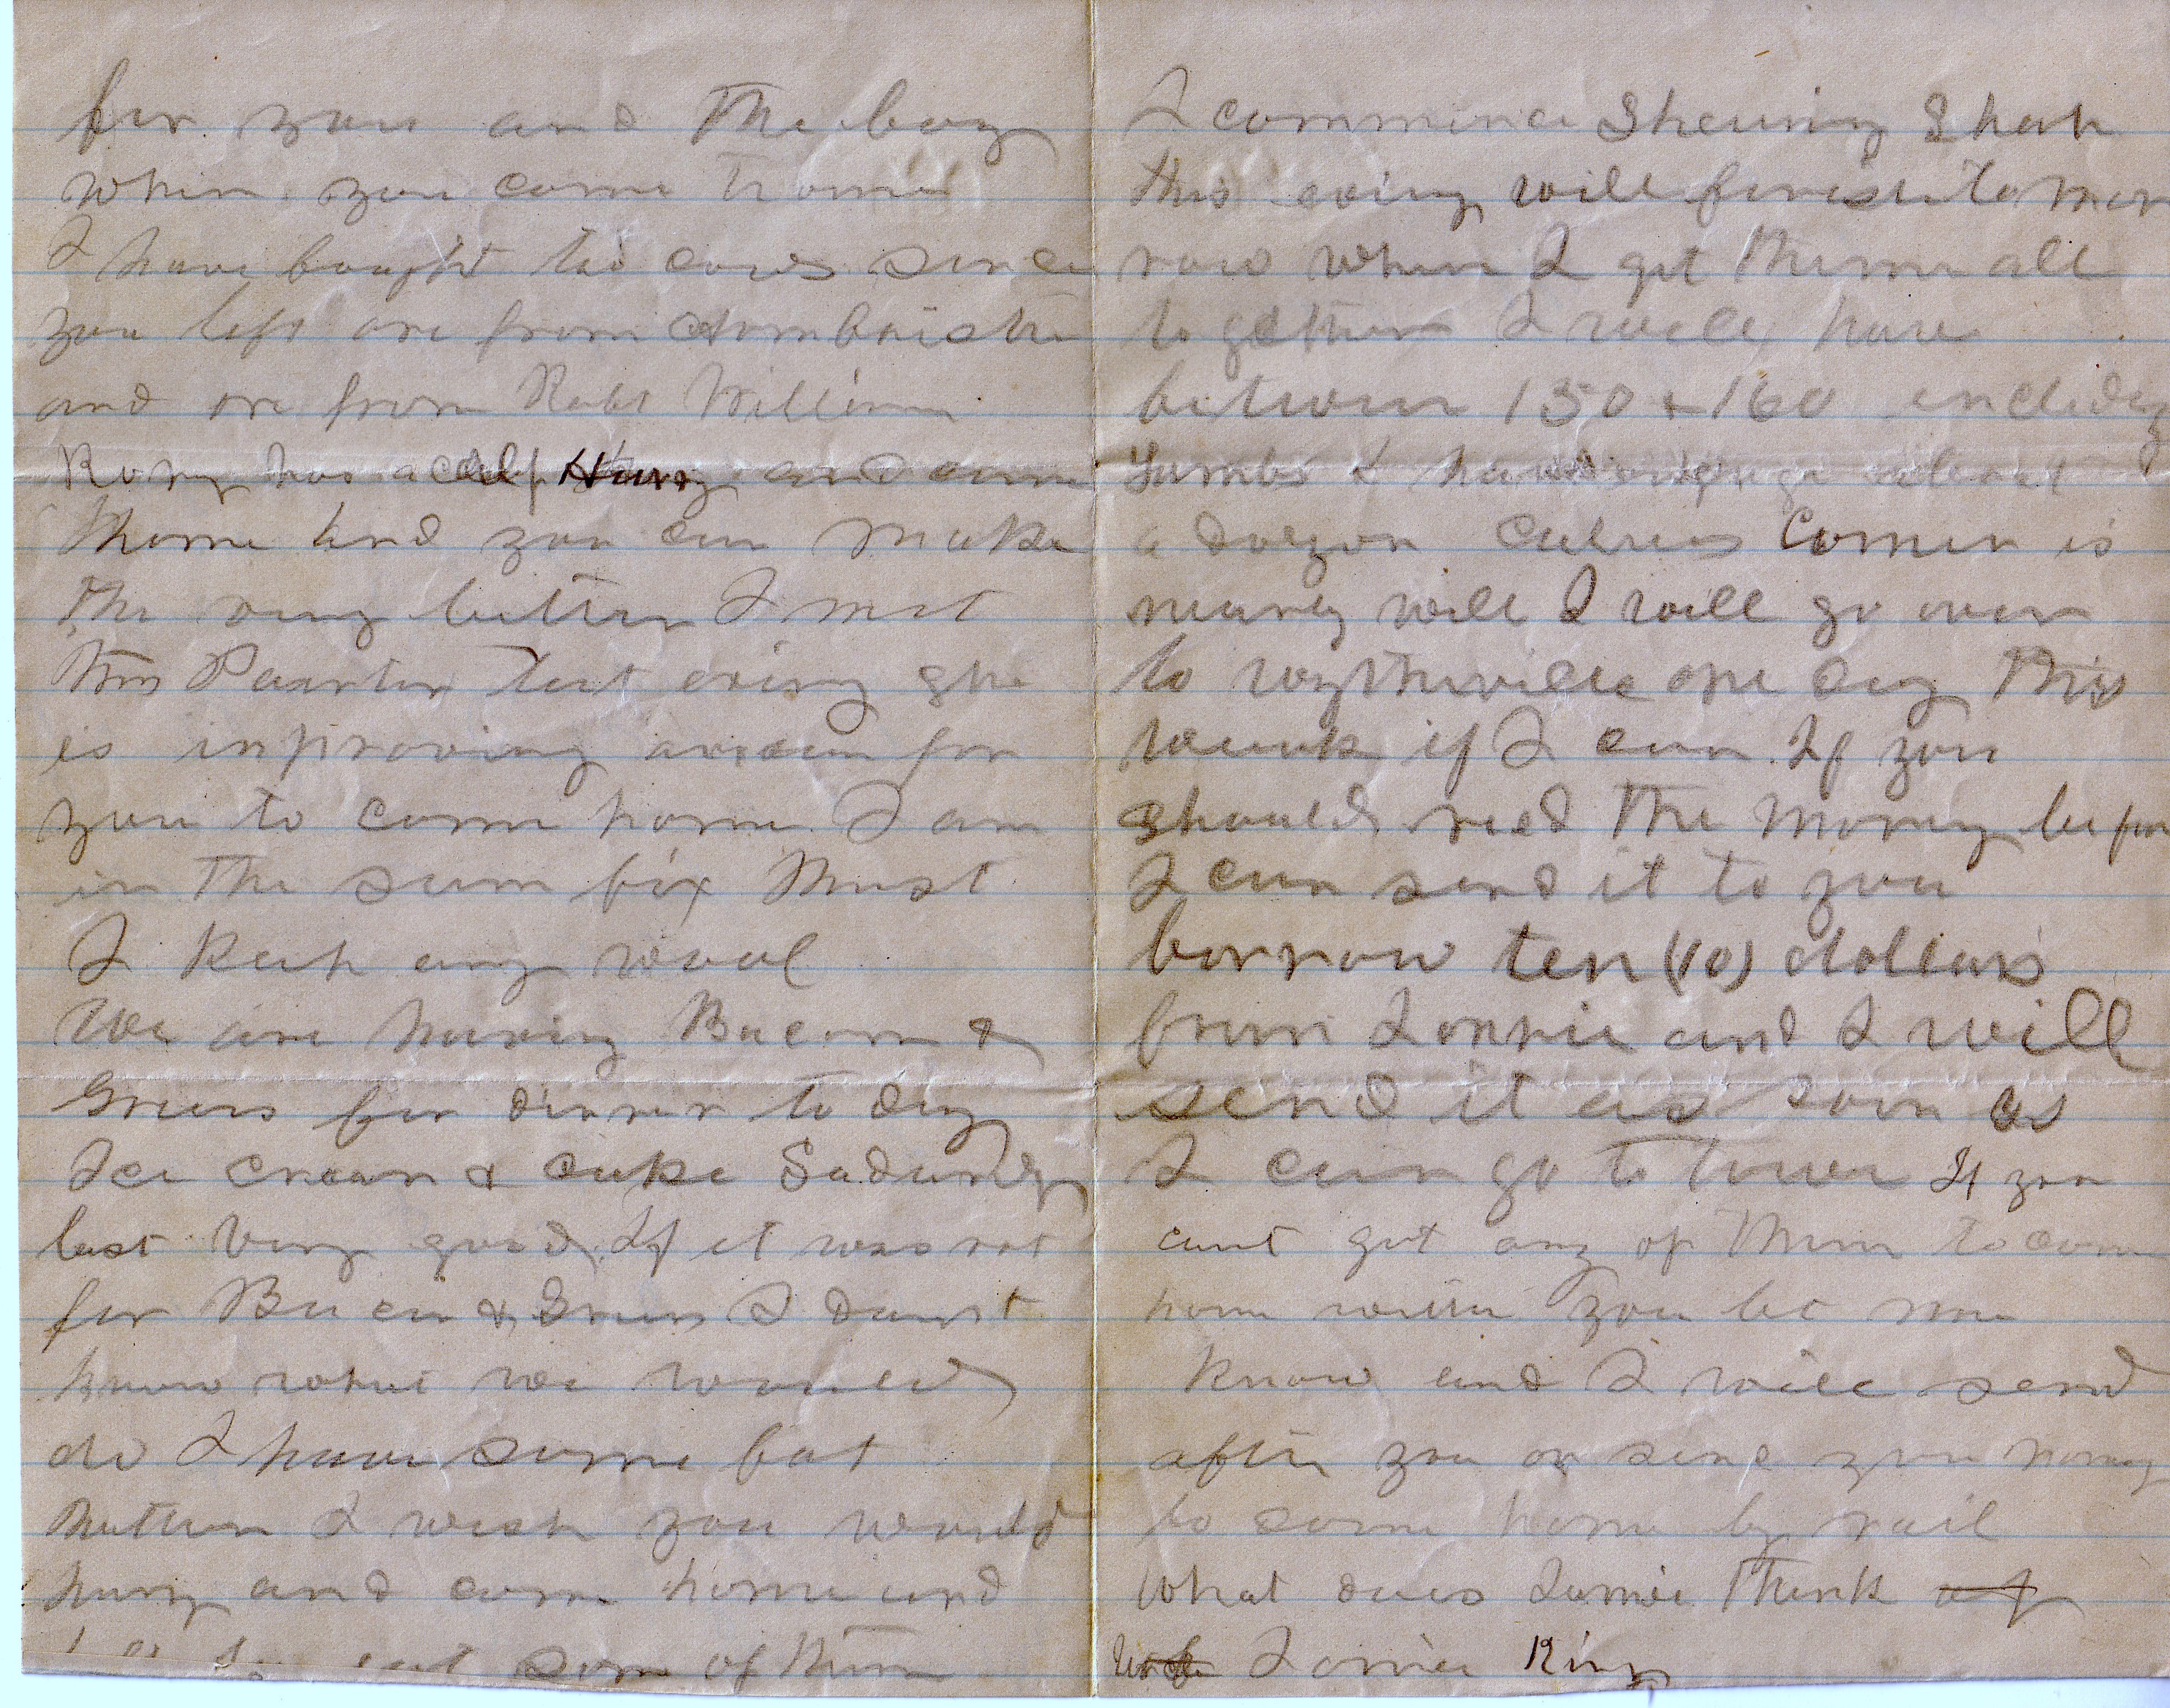 for you and The boy
when you come home
I have bought two cows since
you left one from Armbrister
and one from Robt William
Rony has a calf Hury and come
home and you can make
the  butter I met
Mrs Painter last eving She
is inproving  for
you to come home I am
in The sam fix Must
I Keep any wool
We are having Bacom &
Greens for dinner to day
Ice Cream & cake Saduray
last very good If it was not
for Bacen & Greens I daunt
know what we would
do I have some fat
Mutten I wish you would
hurry and come home and
eat som of them
I commence Shearing Sheap
this eving will finish to mor
row when I get Them all
together I will have
between 150 & 160 encluding
Lambs I have  about
a dozzon Calves Comer is
nearly well I will go over
to wytheville one day This
weeak if I can If you
should need The Money before
I can send it to you
borrow ten (10) dollars
from Lonnie and I will
send it as soon as
I can go to Town If you
cant get any of Them to come
home with you let me
know and I will send
after you or send you money
to come home by rail
What does Lonnie Think of
 Lonnie King